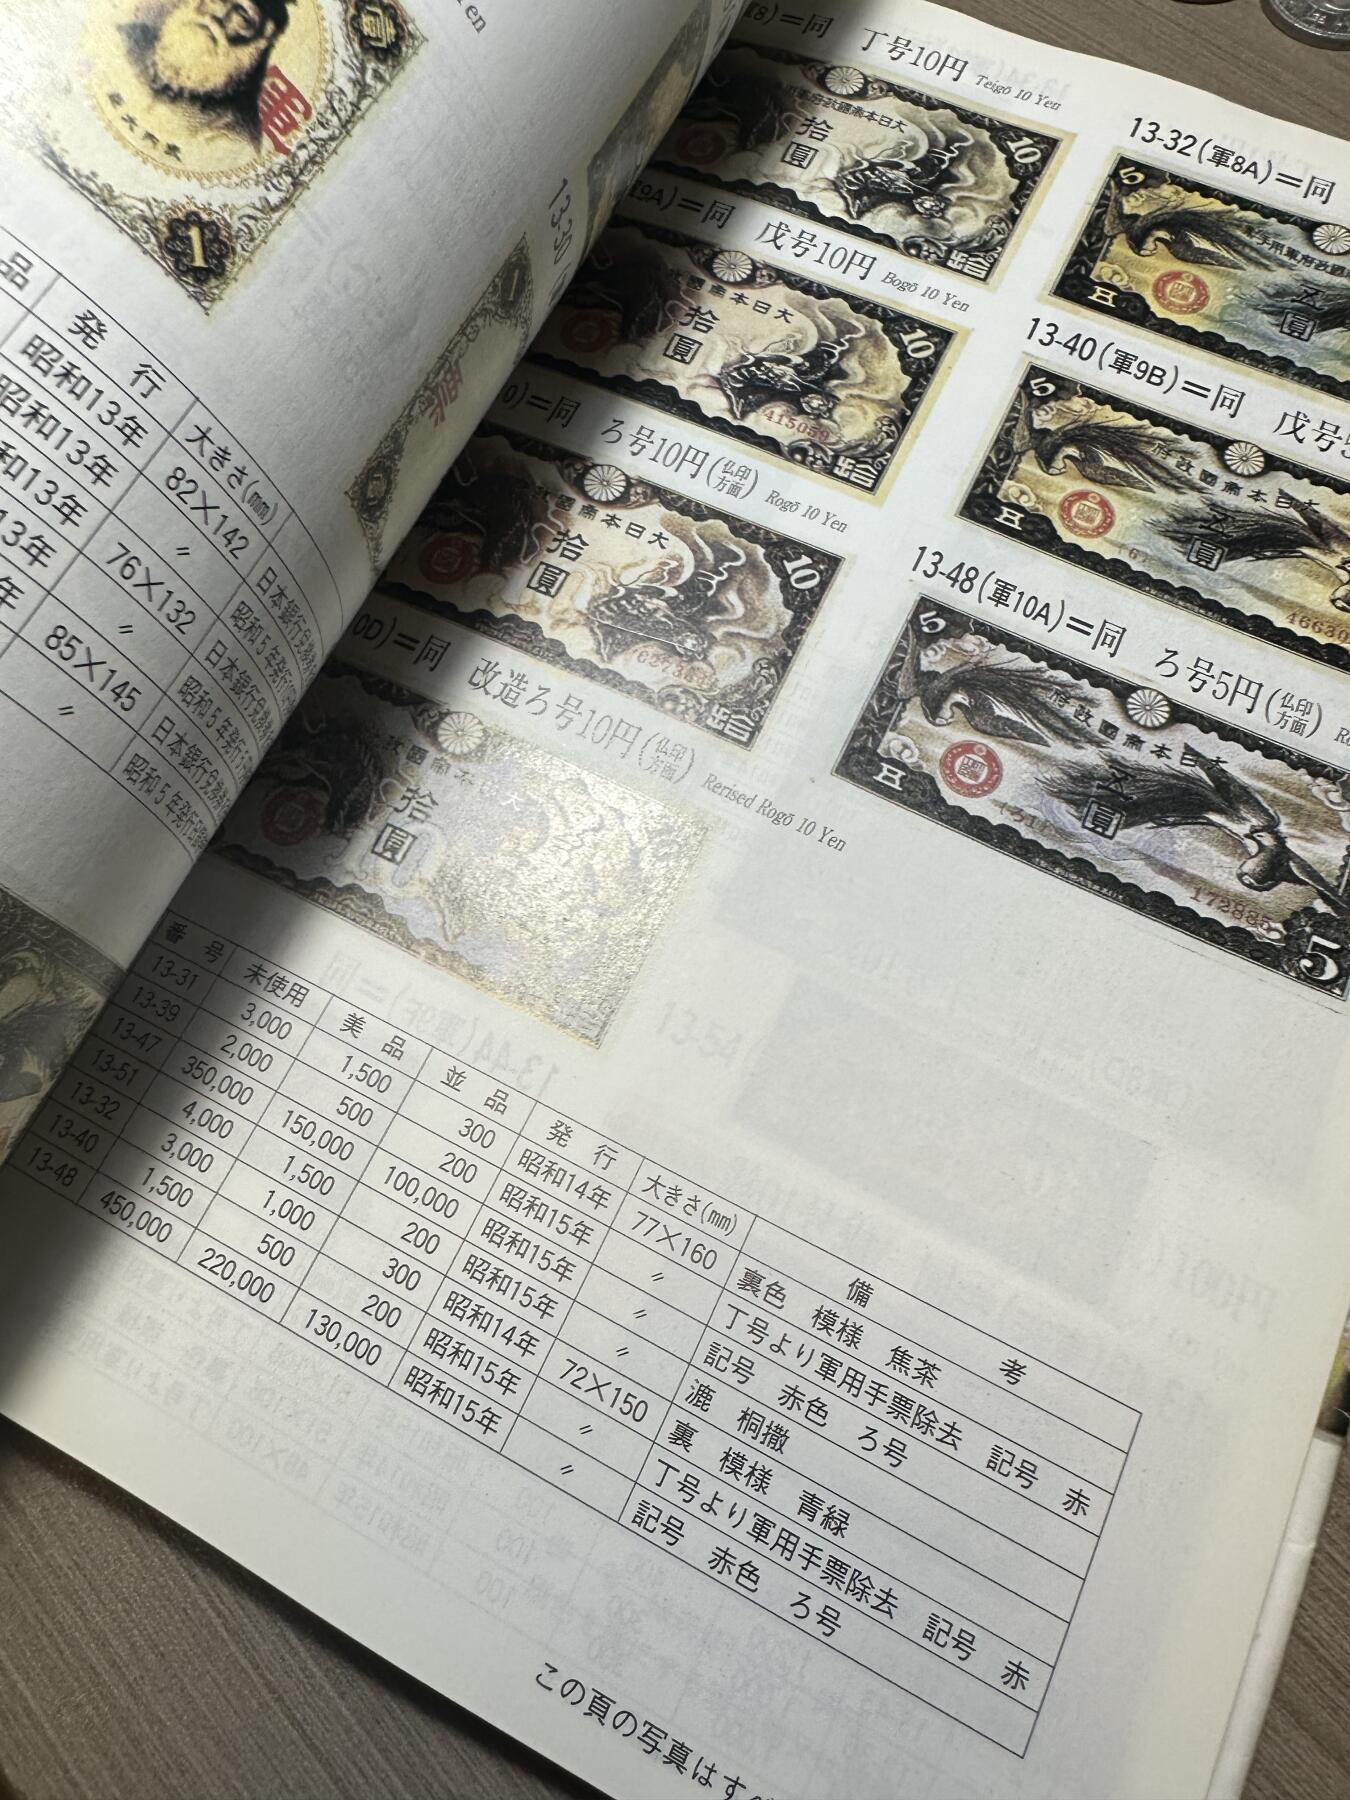 Yen
壹
軍
1
品 発行 大きさ(mm)
昭和13年 82×142 日本銀行兌換
昭和13年 〃 昭和5年発行
和13年 76×132 日本銀行兌換
13年 〃 昭和5年発行
年 85×145 日本銀行兌換
〃 昭和5年発行
13-30
8)=同 丁号10円 Teigō 10 Yen
大日本帝國政府軍用
拾圓
10
9A)=同 戊号10円 Bogō 10 Yen
大日本帝國政
拾圓
10
415059
0)=同 ろ号10円(仏印方面) Rogō 10 Yen
大日本帝國政
拾圓
10
0D)=同 改造ろ号10円(仏印方面) Rerised Rogō 10 Yen
大日本帝國政
拾圓
13-32(軍8A)=同
5
五圓
13-40(軍9B)=同 戊号5
5
大日本帝國政府
五圓
46639
13-48(軍10A)=同 ろ号5円(仏印方面) R
5
大日本帝國政府
五圓
172885
5
番号 未使用 美品 並品 発行 大きさ(mm) 備考
13-31 3,000 1,500 300 昭和14年 77×160 裏色 模様 焦茶
13-39 2,000 500 200 昭和15年 〃 丁号より軍用手票除去 記号 赤
13-47 350,000 150,000 100,000 昭和15年 〃 記号 赤色 ろ号
13-51 4,000 1,500 200 昭和15年 〃 漉 桐撒
13-32 3,000 1,000 300 昭和14年 72×150 裏 模様 青緑
13-40 1,500 500 200 昭和15年 〃 丁号より軍用手票除去 記号 赤
13-48 450,000 220,000 130,000 昭和15年 〃 記号 赤色 ろ号
この頁の写真はすべ